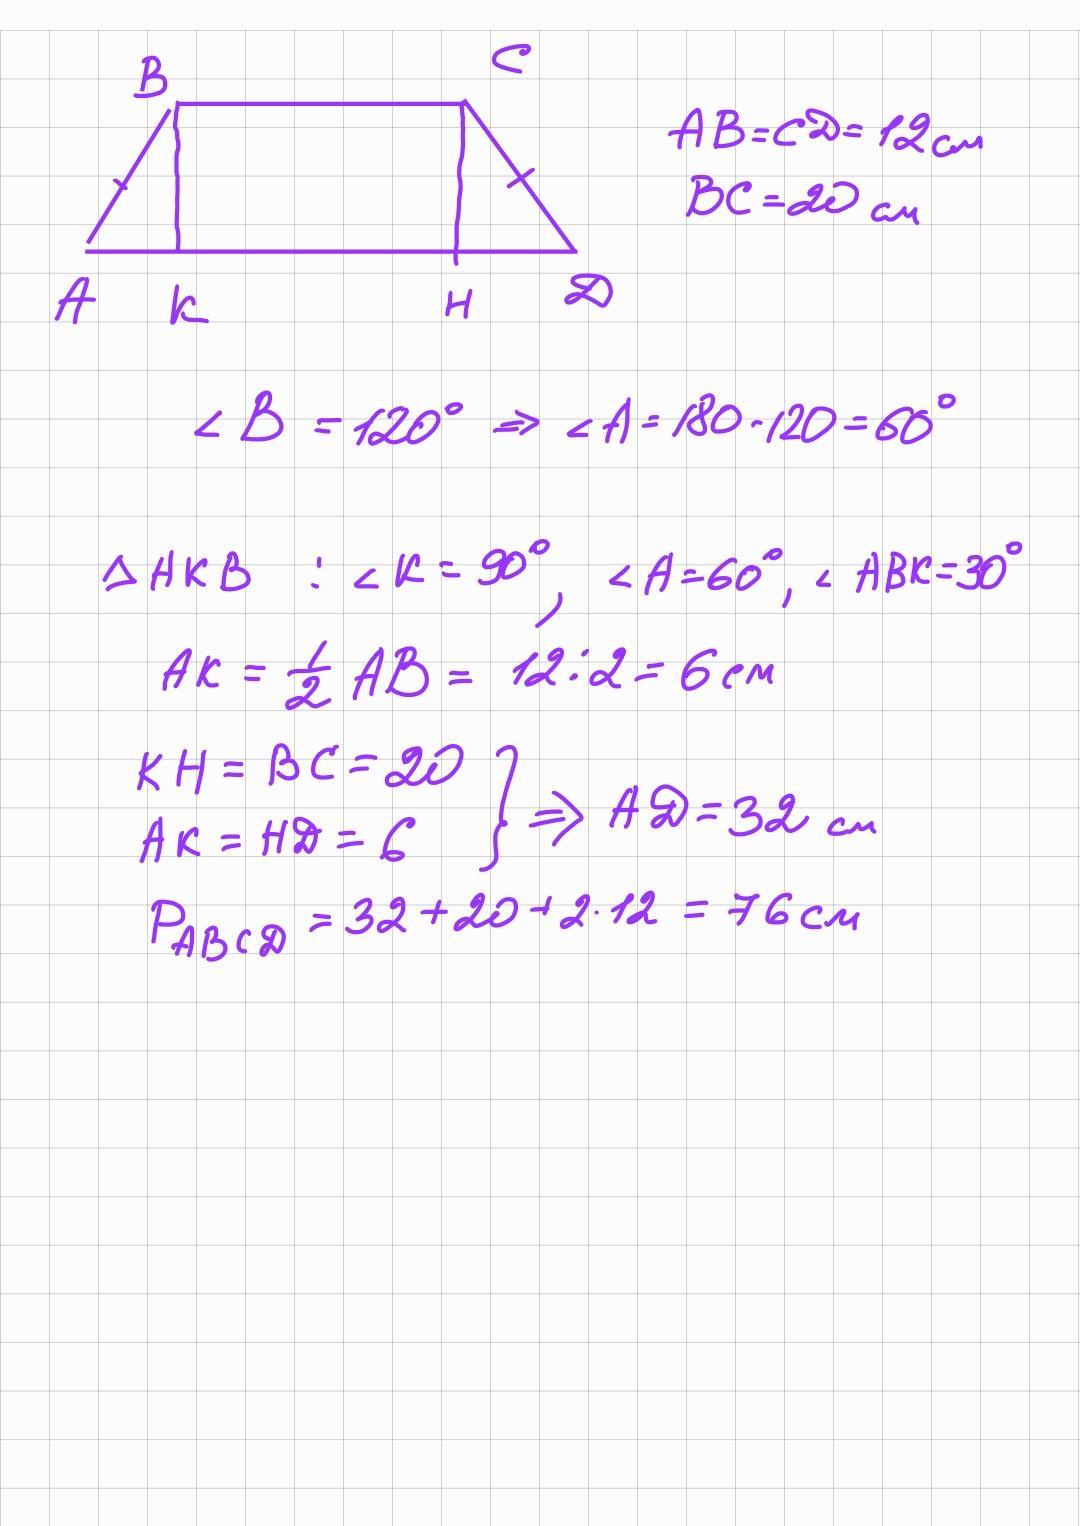 B C
A K H D
AB = CD = 12 см
BC = 20 см
∠B = 120° ⇒ ∠A = 180 - 120 = 60°
△ АКВ : ∠K = 90°, ∠A = 60°, ∠ABK = 30°
AK = 1/2 AB = 12 : 2 = 6 см
KH = BC = 20
AK = HD = 6 } ⇒ AD = 32 см
P_ABCD = 32 + 20 + 2 · 12 = 76 см